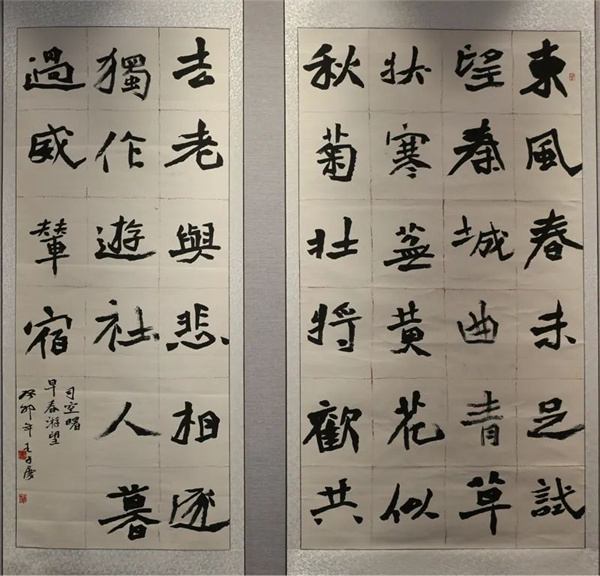 東風春未足試
望秦城曲青草
狀寒蕪黄花似
秋菊壮將歡共
去老與悲相逐
獨作遊社人暮
過威輦宿
司空曙
早春游望
癸卯年